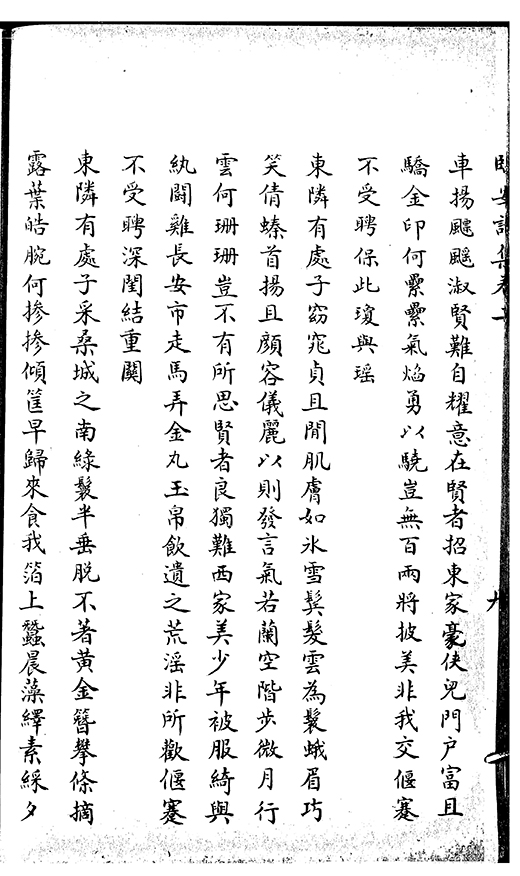 車揚飈飈淑賢難自耀意在賢者招東家豪俠兒門户富且
驕金印何纍纍氣焰勇以驍豈無百兩將披美非我交偃蹇
不受聘保此瓊與瑶
東隣有處子窈窕貞且閒肌膚如氷雪鬒髮雲為鬟蛾眉巧
笑倩螓首揚且顔容儀麗以則發言氣若蘭空階步微月行
雲何珊珊豈不有所思賢者良獨難西家美少年被服綺與
紈鬬雞長安市走馬弄金丸玉帛飲遺之荒滛非所歡偃蹇
不受聘深閨結重關
東隣有處子采桑城之南綠鬟半垂脱不著黄金簪攀條摘
露葉皓腕何摻摻傾筐早歸來食我箔上蠶晨藻繹素綵夕